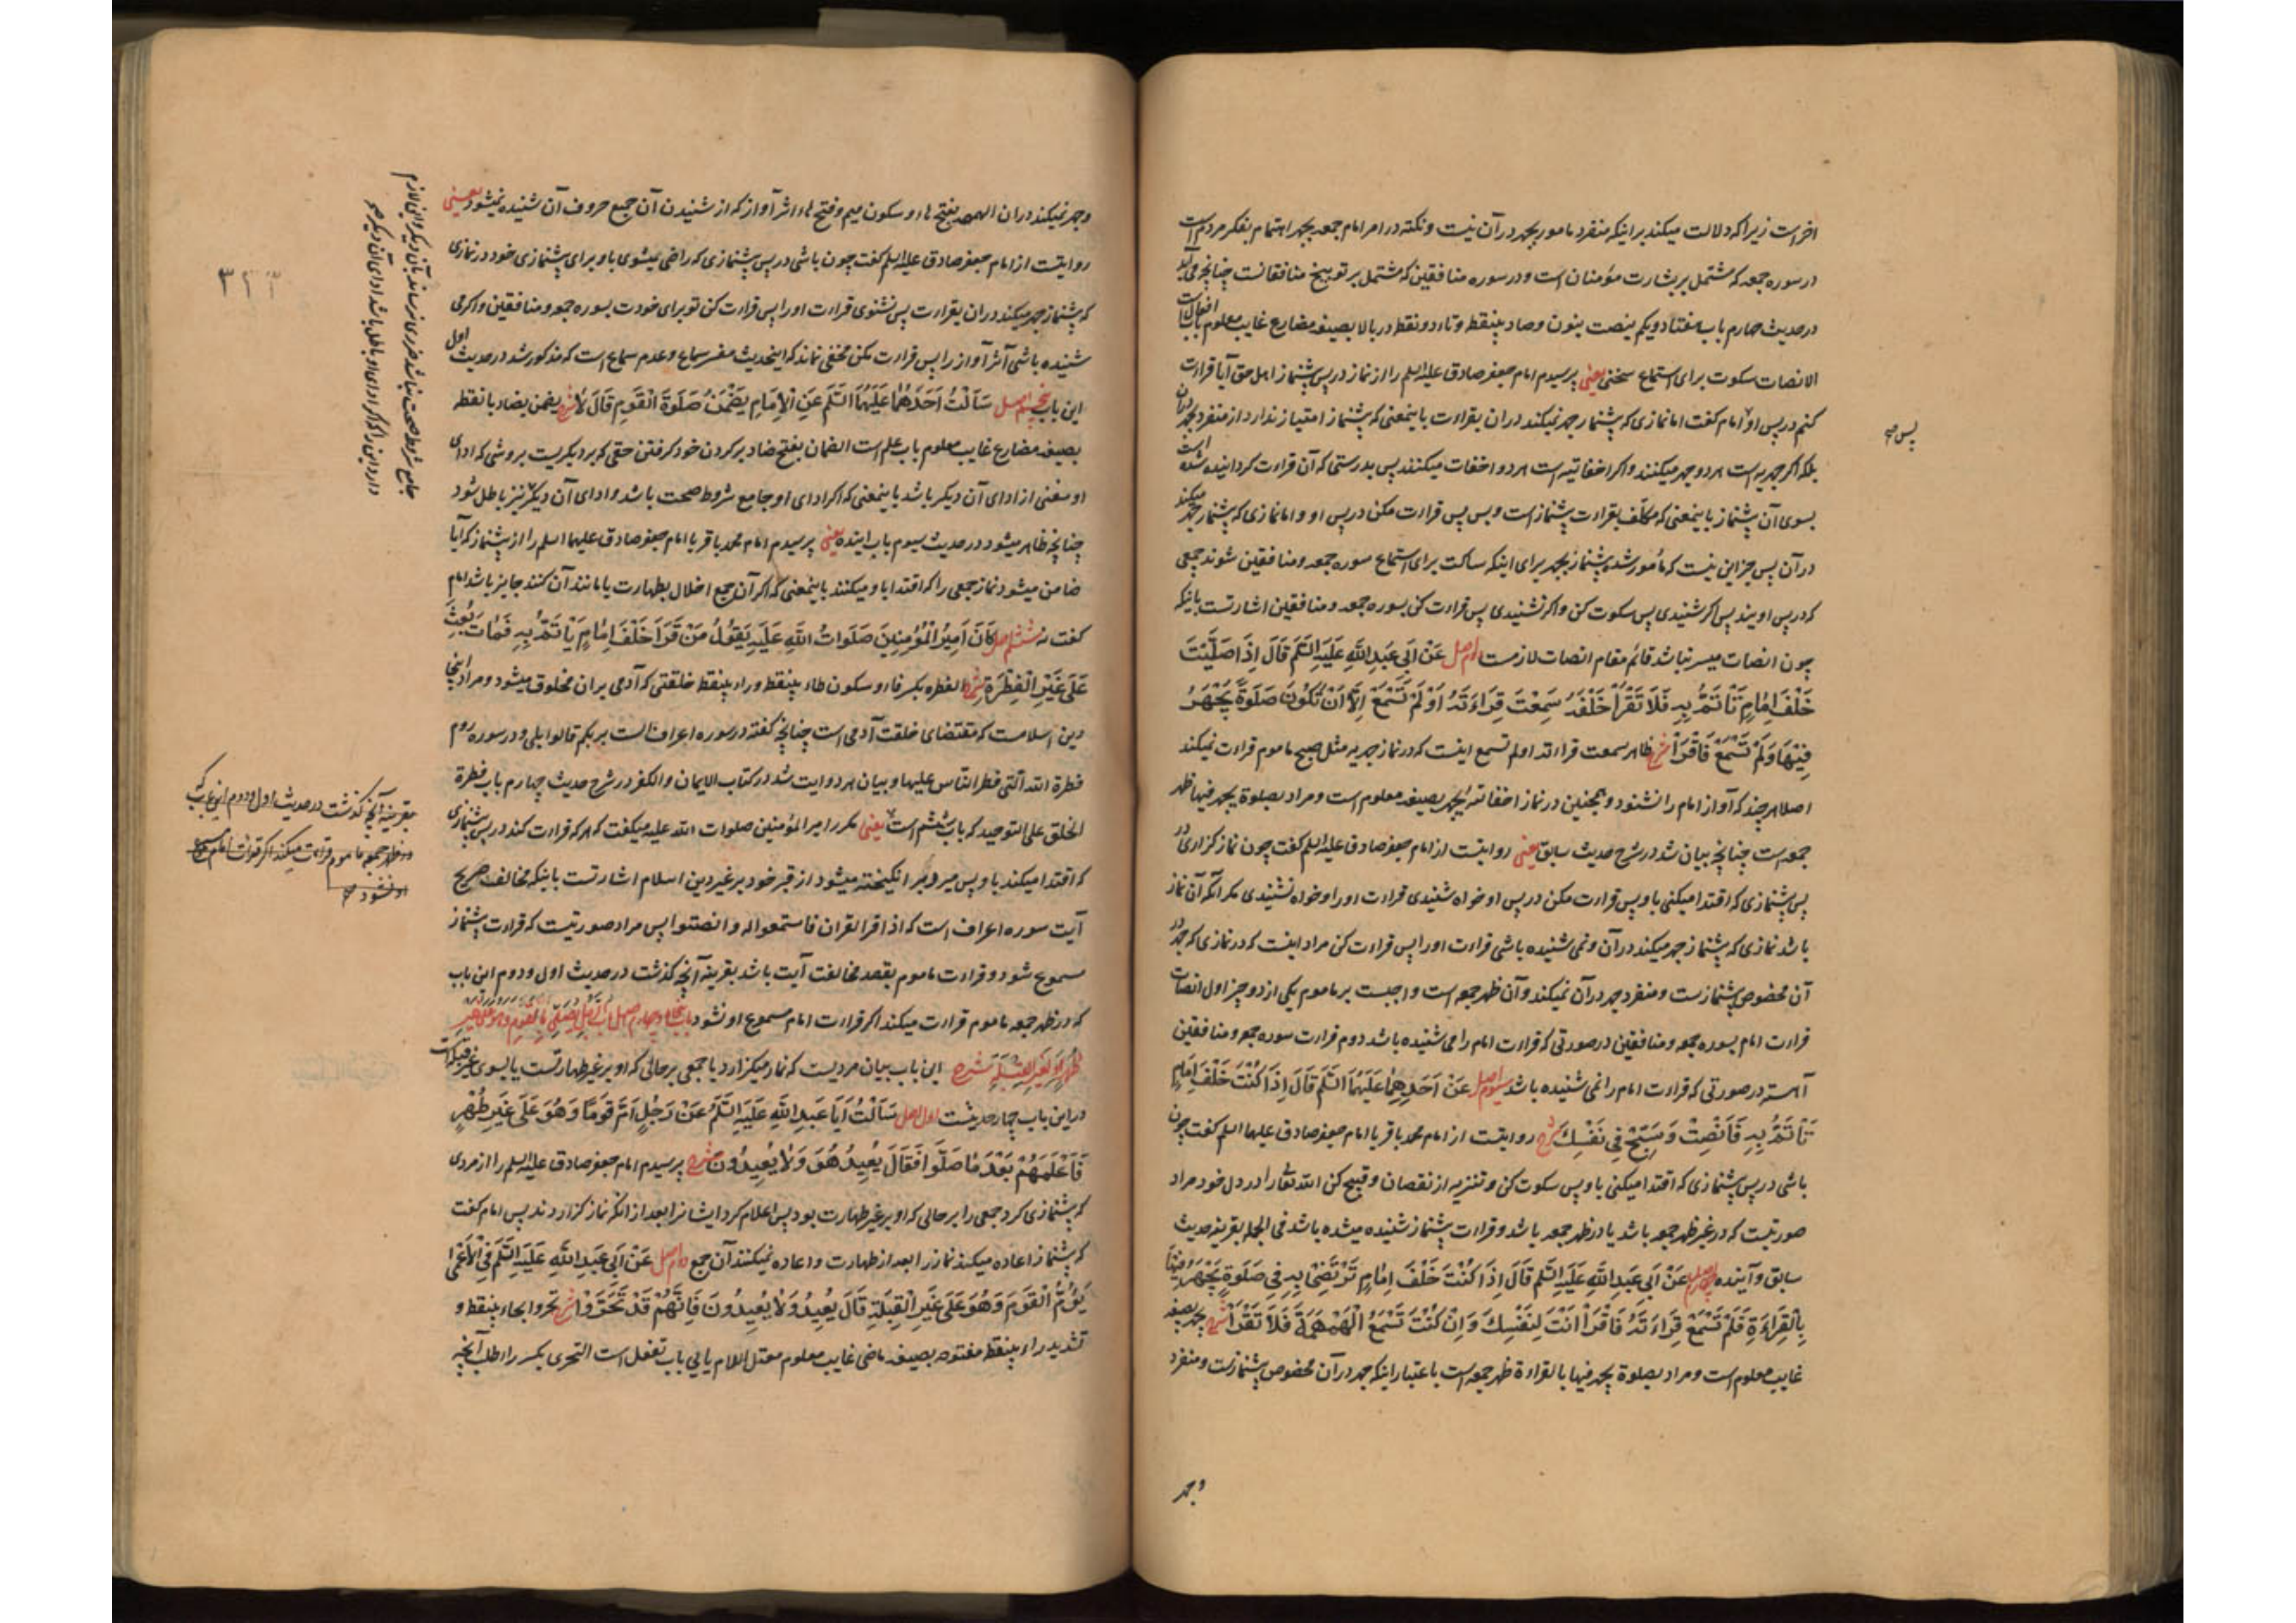 اخر است زیرا که دلالت میکند بر اینکه منفرد مامور بجهر در آن نیست و نکته در امر امام جمعه بجهر اهتمام بفکر مردم است
در سوره جمعه که مشتمل بر بشارت مؤمنان است و در سوره منافقین که مشتمل بر توبیخ منافقانست چنانچه می آید
در حدیث چهارم باب هفتاد و یکم ینصت بنون و صاد بینقطه و تاء دو نقطه در بالا بصیغه مضارع غایب معلوم باب افعال است
الانصات سکوت برای استماع سخنی یعنی پرسیدم امام جعفر صادق علیه السلم را از نماز در پس پیشنماز اهل حق آیا قرارت
کنم در پس او امام کفت اما نمازی که پیشنماز جهر نمیکند دران بقراءت باینمعنی که پیشنماز امتیاز ندارد از منفرد بجهر دران
بلکه اکر جهریه است هر دو جهر میکنند و اکر اخفاتیه است هر دو اخفات میکنند پس بدرستی که آن قراءت کردانیده شده است
بسوی آن پیشنماز باینمعنی که مکلف بقراءت پیشنماز است و بس پس قراءت مکن در پس او و اما نمازی که پیشنماز جهر میکند
در آن پس جز این نیست که مأمور شده پیشنماز بجهر برای اینکه ساکت برای استماع سوره جمعه و منافقین شوند جمعی
که در پس اویند پس اکر شنیدی پس سکوت کن و اکر نشنیدی پس قراءت کن بسوره جمعه و منافقین اشارتست باینکه
چون انصات میسر نباشد قائم مقام انصات لازمست دوم اصل عَنْ اَبِی عَبدِ اللّهِ عَلَیَهِ السَّلَم قَالَ اِذَا صَلَّیْتَ
خَلْفَ اِمَامٍ تَأتَمُّ بِهِ فَلَا تَقْرَأ خَلْفَهُ سَمِعْتَ قِرَاءَتَهُ اَوْ لَمْ تَسْمَعْ اِلَّا اَنْ تَکُونَ صَلَوةً یَجْهَرُ
فِیْهَا وَلَمْ تَسْمَعْ فَاقْرَأ شرح ظاهر سمعت قراءته اولم تسمع اینست که در نماز جهریه مثل صبح ماموم قراءت نمیکند
اصلا هر چند که آواز امام را نشنود و همچنین در نماز اخفاتیه یجهر بصیغه معلوم است و مراد بصلوة یجهر فیها ظهر
جمعه است چنانچه بیان شد در شرح حدیث سابق یعنی روایتست از امام جعفر صادق علیه السلم کفت چون نماز کزاری در
پس پیشنمازی که اقتدا میکنی باو پس قراءت مکن در پس او خواه شنیدی قراءت او را و خواه نشنیدی مکر آنکه آن نماز
باشد نمازی که پیشنماز جهر میکند در آن و نمی شنیده باشی قراءت او را پس قراءت کن مراد اینست که در نمازی که جهر در
آن مخصوص پیشنمازست و منفرد جهر در آن نمیکند و آن ظهر جمعه است واجبست بر ماموم یکی از دو چیز اول انصات
قراءت امام بسوره جمعه و منافقین در صورتی که قراءت امام را می شنیده باشد دوم قراءت سوره جمعه و منافقین
آهسته در صورتی که قراءت امام را نمی شنیده باشد سیوم اصل عَنْ اَحَدِهِمَا عَلَیْهِمَا السَّلَم قَالَ اِذَا کُنْتَ خَلْفَ اِمَامٍ
تَأتَمُّ بِهِ فَاَنْصِتْ وَ سَبِّحْ فِی نَفْسِكَ شرح روایتست از امام محمد باقر یا امام جعفر صادق علیهما السلم کفت چون
باشی در پس پیشنمازی که اقتدا میکنی باو پس سکوت کن و تنزیه از نقصان و قبیح کن الله تعالی را در دل خود مراد
صورتیست که در غیر ظهر جمعه باشد یا در ظهر جمعه باشد و قراءت پیشنماز شنیده میشده باشد فی الجمله بقرینه حدیث
سابق و آینده چهارم اصل عَنْ اَبِی عَبدِ اللّهِ عَلَیَهِ السَّلَم قَالَ اِذَا کُنْتَ خَلْفَ اِمَامٍ تَرْتَضِیْ بِهِ فِی صَلَوةٍ یَجْهَرُ فِیْهَا
بِالْقِرَاءَةِ فَلَمْ تَسْمَعْ قِرَاءَتَهُ فَاقْرَأ اَنْتَ لِنَفْسِكَ وَ اِنْ کُنْتَ تَسْمَعُ الْهَمْهَمَةَ فَلَا تَقْرَأ شرح یجهر بصیغه
غایب معلوم است و مراد بصلوة یجهر فیها بالقراءة ظهر جمعه است باعتبار اینکه جهر در آن مخصوص پیشنمازست و منفرد
وجهر
پس صح
وجهر نمیکند دران الهمهمه بفتح هاء و سکون میم و فتح هاء اثر آواز که از شنیدن آن جمیع حروف آن شنیده نمیشود یعنی
روایتست از امام جعفر صادق علیه السلم کفت چون باشی در پس پیشنمازی که راضی میشوی باو برای پیشنمازی خود در نمازی
که پیشنماز جهر میکند دران بقراءت پس نشنوی قراءت او را پس قراءت کن تو برای خودت بسوره جمعه و منافقین و اکر می
شنیده باشی آثر آواز را پس قراءت مکن مخفی نماند که اینحدیث مفسر سماع و عدم سماع است که مذکور شد در حدیث اول
این باب پنجم اصل سَاَلْتُ اَحَدَهُمَا عَلَیْهِمَا السَّلَم عَنِ الْاِمَامِ یَضْمَنُ صَلَوةَ الْقَوْمِ قَالَ لَا شرح یضمن بضاد با نقطه
بصیغه مضارع غایب معلوم باب علم است الضمان بفتح ضاد بر کردن خود کرفتن حقی که بر دیکریست بروشی که ادای
او مغنی از ادای آن دیکر باشد باینمعنی که اکر ادای او جامع شروط صحت باشد و ادای آن دیکر نیز باطل شود
چنانچه ظاهر میشود در حدیث سیوم باب اینده یعنی پرسیدم امام محمد باقر یا امام جعفر صادق علیهما السلم را از پیشنماز که آیا
ضامن میشود نماز جمعی را که اقتدا باو میکنند باینمعنی که اکر آن جمع اخلال بطهارت یا مانند آن کنند جایز باشد امام
کفت نه ششم اصل کَانَ اَمِیْرُ الْمُؤْمِنِینَ صَلَوَاتُ اللّهِ عَلَیَهِ یَقُولُ مَنْ قَرَأ خَلْفَ اِمَامٍ یَأتَمُّ بِهِ فَمَاتَ بُعِثَ
عَلَی غَیْرِ الْفِطْرَةِ شرح الفطره بکسر فاء و سکون طاء بینقطه و راء بینقطه خلقتی که آدمی بران مخلوق میشود و مراد اینجا
دین اسلامست که مقتضای خلقت آدمی است چنانچه کفته در سوره اعراف الست بربکم قالوا بلی و در سوره روم
فطرة الله التی فطر الناس علیها و بیان هر دو ایت شد در کتاب الایمان و الکفر در شرح حدیث چهارم باب فطرة
الخلق علی التوحید که باب ششم است یعنی مکرر امیر المؤمنین صلوات الله علیه میکفت که هر که قراءت کند در پس پیشنمازی
که اقتدا میکند باو پس میرد برانکیخته میشود از قبر خود بر غیر دین اسلام اشارتست باینکه مخالف صریح
آیت سوره اعراف است که اذا قرأ القران فاستمعوا له و انصتوا پس مراد صورتیست که قراءت پیشنماز
مسموع شود و قراءت ماموم بقصد مخالفت آیت باشد بقرینه آنچه کذشت در حدیث اول و دوم این باب
که در ظهر جمعه ماموم قراءت میکند اکر قراءت امام مسموع او نشود باب پنجاه و چهارم اصل باب الرجل یصلی بالقوم و هو علی غیر
طهر او لغیر القبلة شرح این باب بیان مردیست که نماز میکزارد با جمعی بر حالی که او بر غیر طهارتست یا بسوی غیر قبله است
در این باب چهار حدیثست اول اصل سَاَلْتُ اَبَا عَبدِ اللّهِ عَلَیَهِ السَّلَم عَنْ رَجُلٍ اَمَّ قَوْمًا وَ هُوَ عَلَی غَیَرِ طُهْرٍ
فَاَعْلَمَهُمْ بَعْدَ مَا صَلَّوا فَقَالَ یُعِیدُ هُوَ وَلَا یُعِیدُونَ شرح پرسیدم امام جعفر صادق علیه السلم را از مردی
که پیشنمازی کرد جمعی را بر حالی که او بر غیر طهارت بود پس اعلام کرد ایشانرا بعد از انکه نماز کزاردند پس امام کفت
که پیشنماز اعاده میکند نماز را بعد از طهارت و اعاده نمیکنند آن جمع دوم اصل عَنْ اَبِی عَبدِ اللّهِ عَلَیَهِ السَّلَم فِی الْاَعْمَی
یَؤُمُّ الْقَوْمَ وَ هُوَ عَلَی غَیَرِ الْقِبلَةِ قَالَ یُعِیدُ وَلَا یُعِیدُونَ فَاِنَّهُمْ قَدْ تَحَرَّوْا شرح تحروا بحاء بینقطه و
تشدید راء بینقطه مفتوحه بصیغه ماضی غایب معلوم معتل اللام یایی باب تفعل است التحری بکسر راء طلب آنچه
جامع شروط صحت نباشد ضرری نرساند بآن دیکر و این لازم
دارد این را که اکر ادای او باطل باشد ادای آن دیکر صح
۳۲۳
بقرینه آنچه کذشت در حدیث اول و دوم این باب که
در ظهر جمعه ماموم قراءت میکند اکر قراءت امام مسموع
او نشود صح